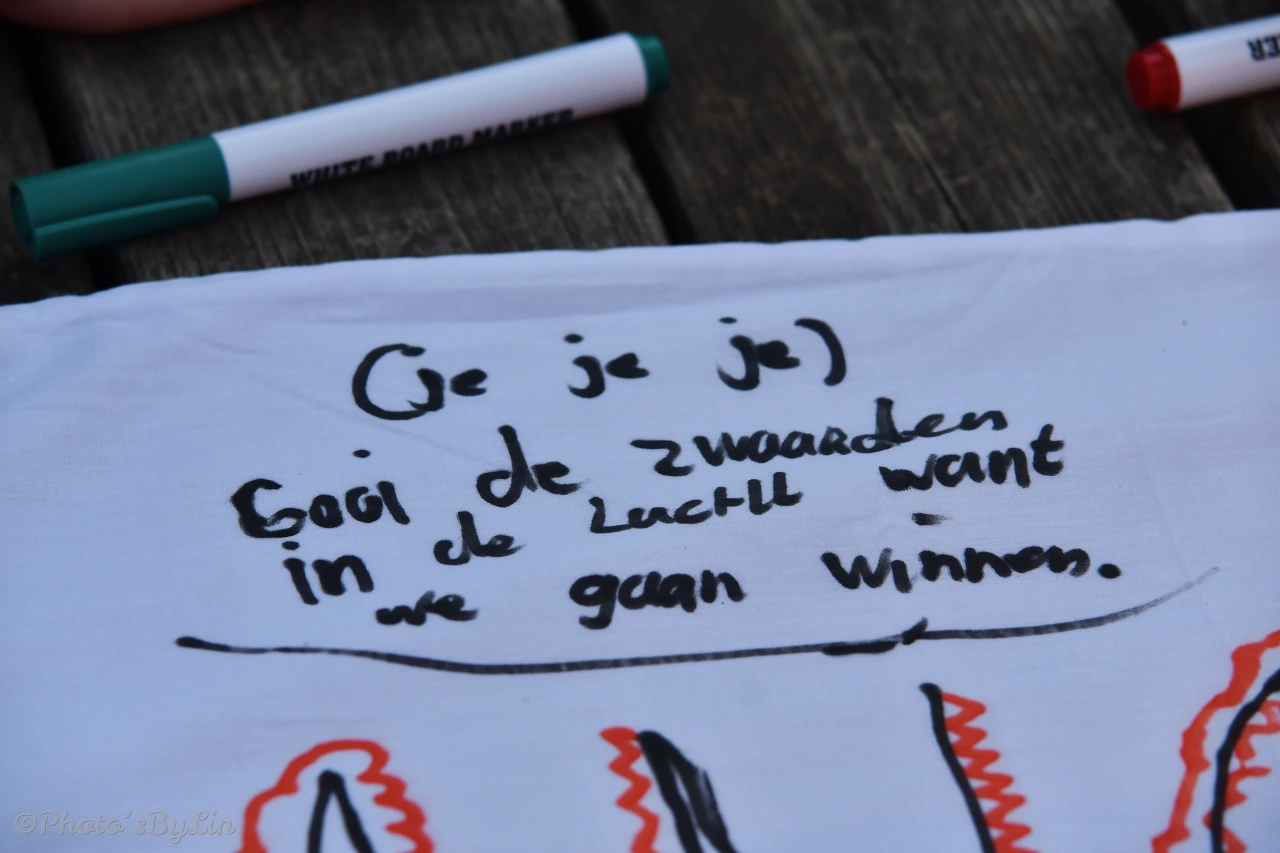 WHITE BOARD MARKER
KER
(je je je)
Gooi de zwaarden
in de lucht want
we gaan winnen.
©Photo'sByLin